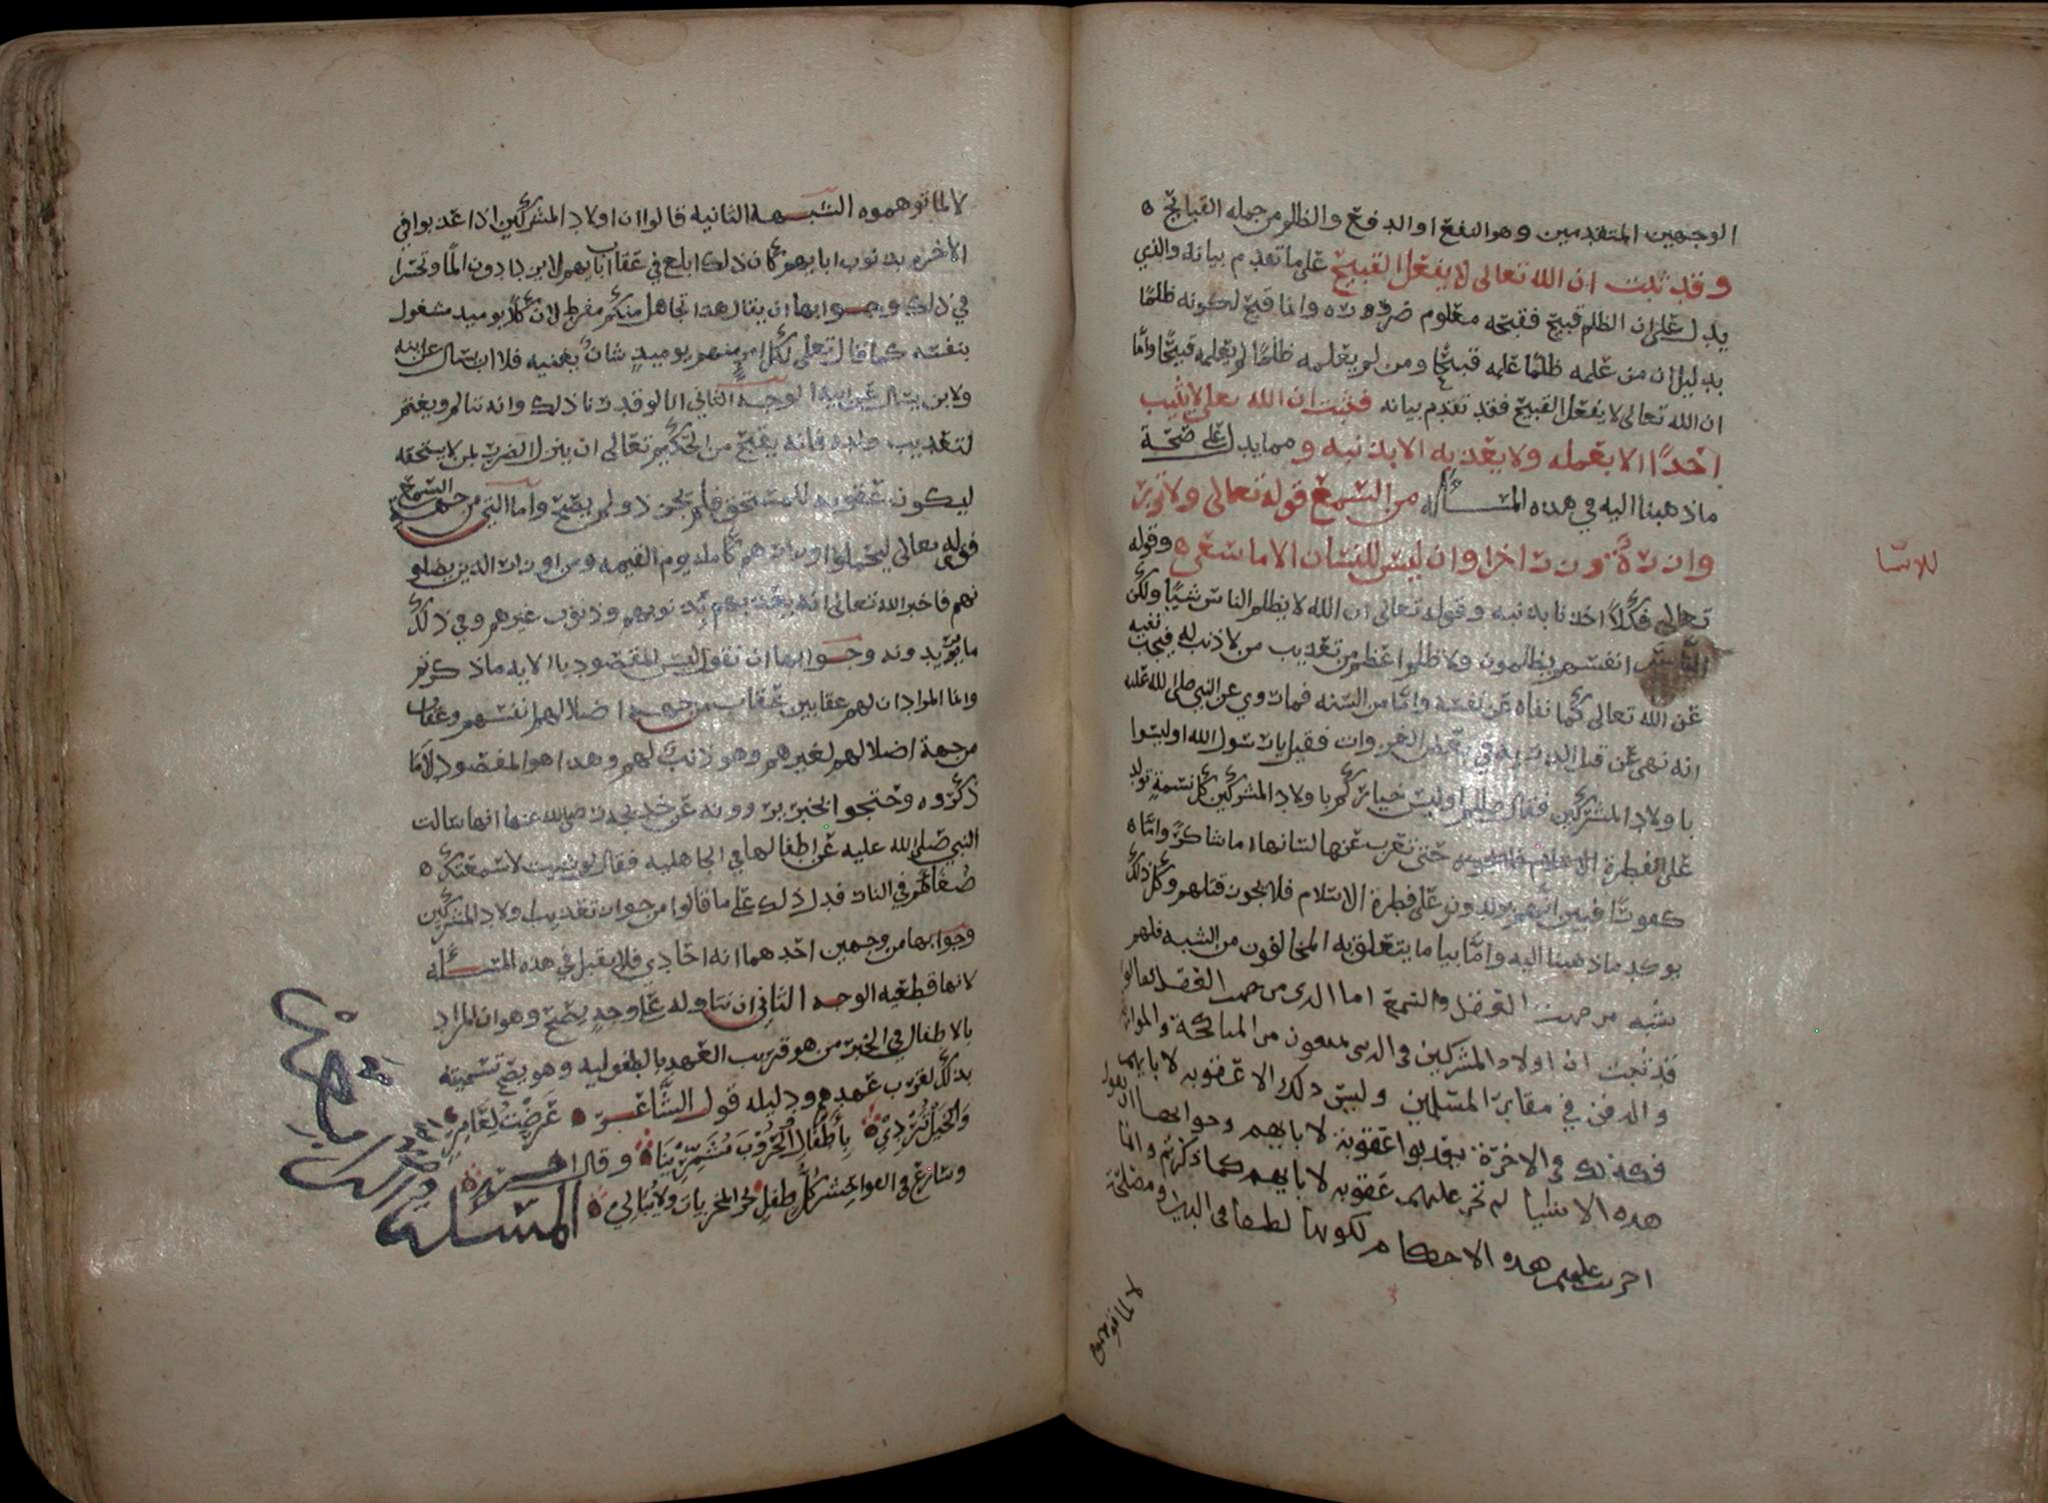 الوجهين المتقدمين وهو النفع او الدفع والظلم من جمله القبائح ه
وقد ثبت ان الله تعالى لا يفعل القبيح على ما تقدم بيانه والذي
يدل على ان الظلم قبيح فقبحه معلوم ضرورة وانما قبح لكونه ظلمًا
بدليل ان من علمه ظلمًا علمه قبيحًا ومن لم يعلمه ظلمًا لم يعلمه قبيحًا وامّا
ان الله تعالى لا يفعل القبيح فقد تقدم بيانه فثبت ان الله تعلى لا يثيب
احدًا الا بعمله ولا يعذبه الا بذنبه ومما يدل على صحّة
ماذهبنا اليه في هذه المسـألة من السمع قوله تعالى ولا تزر
وازرةٌ وزر اخرا وان ليس للنسان الا ما سعى ه وقوله
للانسا
تعالى فكلاً اخذنا بذنبه وقوله تعالى ان الله لا يظلم الناس شيئًا ولكن
الناس انفسهم يظلمون ولا ظلم اعظم من تعذيب من لا ذنب له فيجب نفيه
عن الله تعالى كما نفاه عن نفسه وامّا من السنه فما روي عن النبي صلى الله عليه
انه نهى عن قتل الذريه في بعض الغزوات فقيل يارسول الله اوليسوا
باولاد المشركين فقال صللم اوليس خياركم باولاد المشركين كل نسمةٍ تولد
على الفطرة حتى تعرب عنها لسانها اما شاكرًا وامّا ه
كفورًا فبين انهم يولدون على فطرة الاسلام فلا يجوز قتلهم وكل ذلك
يوكد ماذهبنا اليه وامّا بيا ما يتعلق به المخالفون من الشبه فلهم
شبه من جهت العقل والسمع اما الذى من جهت العقل فقالوا
قد ثبت ان اولاد المشركين فى الدنى ممنعون من المناكحة والموارثه
والدفن في مقابر المسلمين وليس ذلك الا عقوبه لابايهم
فكذلك فى الاخرة يعذبوا عقوبة لابايهم وجوابها ان نقول
هذه الاشيا لم تجر عليهم عقوبه لابايهم كما ذكرتم وانما
اجريت عليهم هذه الاحكام لكونها لطفا فى الدين ومصلحة
لا لما توهموه
لا لما توهموه الشبهة الثانيه قالوا ان اولاد المشركين اذا عذبوا في
الاخره بذنوب ابايهم كان ذلك ابلغ في عقاب ابايهم لانهم يزدادون المًا وتحسرا
في ذلك وجوابها ان يقال هذا تجاهل منكم مفرط لان كلاً يوميد مشغول
بنفسه كما قال تعلى لكل امرٍ منهم يوميدٍ شان يغنيه فلا اب يسال عن ابنه
ولا بن يسال عن ابيه الوجه الثاني انا لو قدرنا ذلك وانه يتالم ويغتم
لتعذيب ولده فانه يقبح من الحكيم تعالى ان ينزل الضرر بمن لا يستحقه
ليكون عقوبه للمستحق فلم يجز ذلك ولم يصح وامّا التي من جهة السمع
فقوله تعالى ليحملوا اوزارهم كاملة يوم القيمه ومن اوزار الذين يضلو
نهم فاخبر الله تعالى انه يعذبهم بذنوبهم وذنوب غيرهم وفي ذلك
ما تريدونه وجوابها ان نقول ليس المقصود بالايه ماذكرتم
وانما المراد ان لهم عقابين عقاب من جهة اضلالهم انفسهم وعقاب
من جهة اضلالهم لغيرهم وهو ذنبٌ لهم وهذا هو المقصود لا ما
ذكروه وحتجوا بخبر يروونه عن خديجه رضى الله عنها انها سالت
النبي صلى الله عليه عن اطفالها في الجاهليه فقال لو شيت لاسمعتك ه
ضغاهم في النار فدل ذلك على ما قالوا من جواز تعذيب ولاد المشركين
وجوابها من وجهين احدهما انه احادي فلا يقبل في هذه المسئله
لانها قطعيه الوجه الثاني ان نتاوله على وجهٍ يصح وهو ان المراد
بالاطفال في الخبر من هو قريب العهد بالطفوليه وهو يصح تسميته
بذلك لقرب عهده ودليله قول الشاعر ه عَرَضْتُ لِعَامِرٍ
وَالخَيْلُ تُرْدِيْ بِأَطْفَالِ الْحُرُوْبَ مُشَمِّرِيْنَا وقال اخر
وسارع فى الفواحش كُلُّ طفلٍ يجر المخزيات ولا يُبالي
المسئله